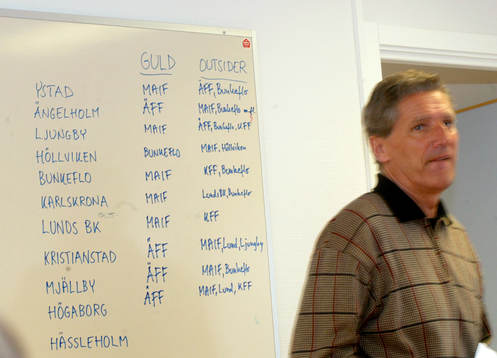 GULD OUTSIDER
YSTAD MAIF ÄFF, Bunkeflo
ÄNGELHOLM ÄFF MAIF, Bunkeflo m.fl
LJUNGBY MAIF ÄFF, Bunkeflo, KFF
HÖLLVIKEN BUNKEFLO MAIF, Höllviken
BUNKEFLO MAIF KFF, Bunkeflo
KARLSKRONA MAIF Lunds BK, Bunkeflo
LUNDS BK MAIF KFF
KRISTIANSTAD ÄFF MAIF, Lund, Ljungby
MJÄLLBY ÄFF MAIF, Bunkeflo
HÖGABORG ÄFF MAIF, Lund, KFF
HÄSSLEHOLM